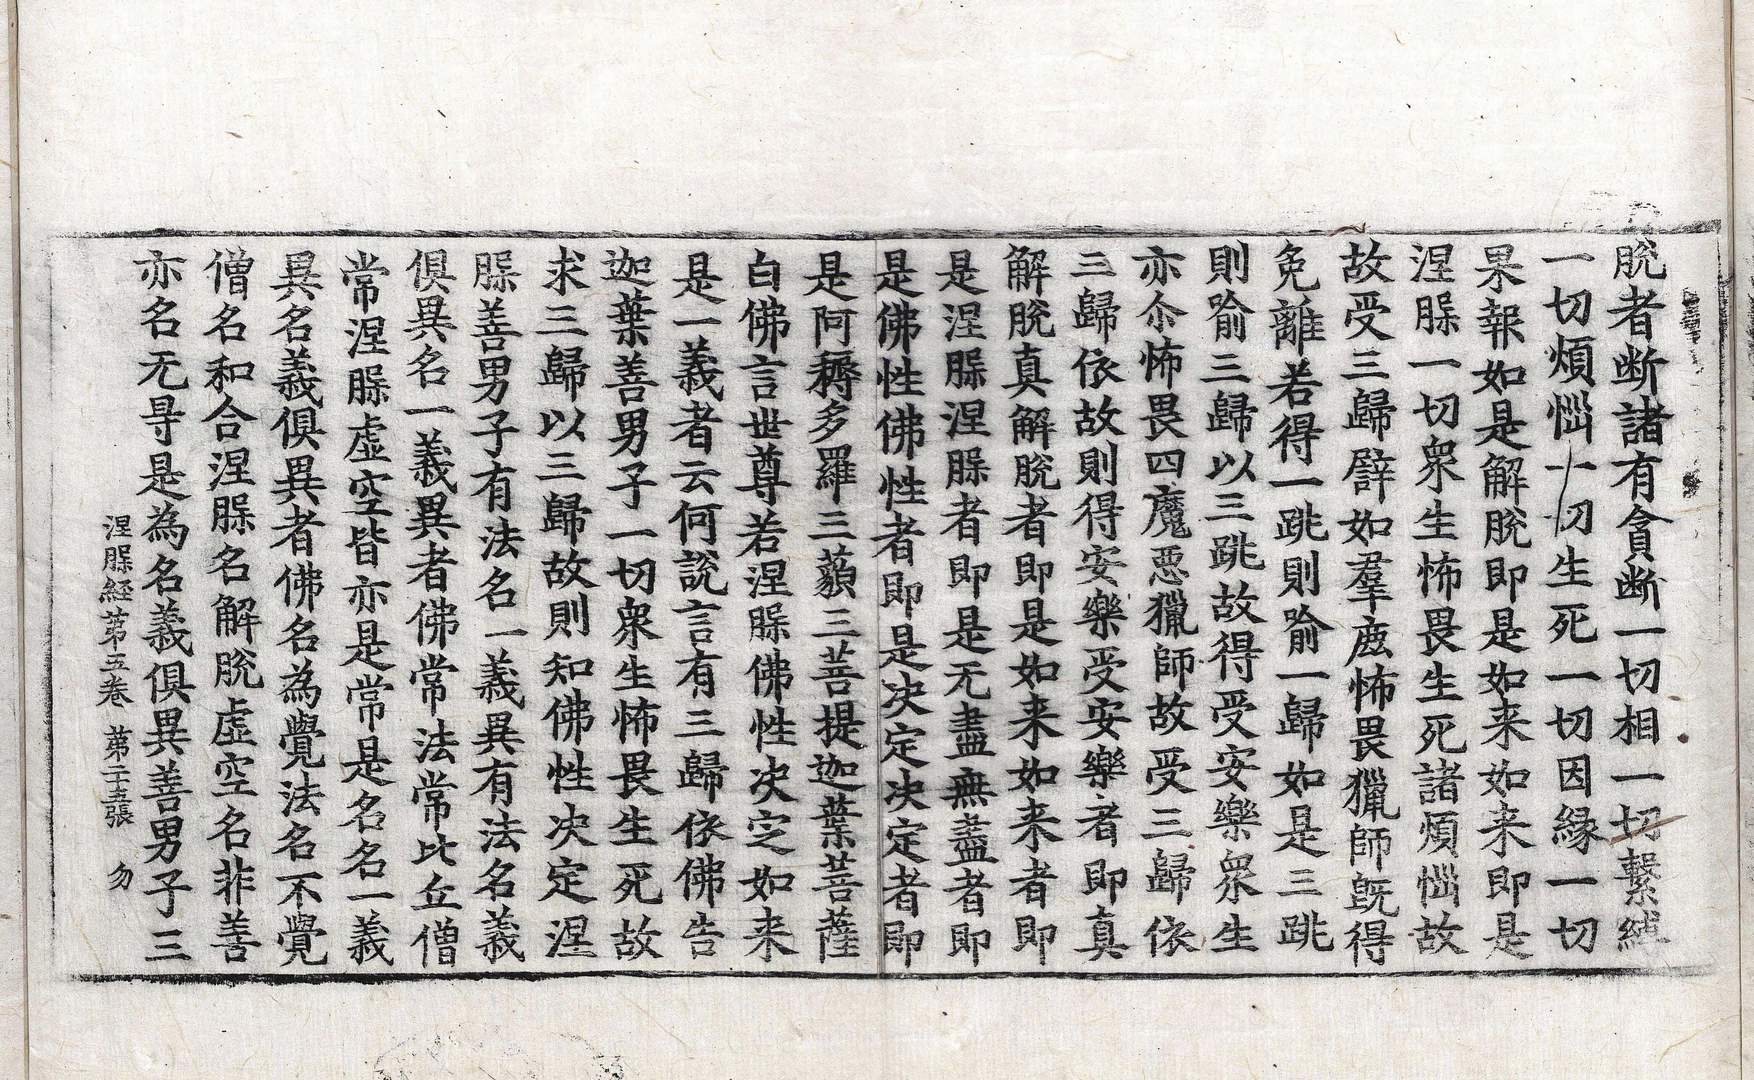 脫者断諸有貪断一切相一切繫縛
一切煩惱一切生死一切因縁一切
果報如是解脫即是如来如来即是
涅槃一切衆生怖畏生死諸煩惱故
故受三歸譬如羣鹿怖畏獵師旣得
免離若得一跳則喻一歸如是三跳
則喻三歸以三跳故得受安樂衆生
亦尒怖畏四魔惡獵師故受三歸依
三歸依故則得安樂受安樂者即真
解脫真解脫者即是如来如来者即
是涅槃涅槃者即是无盡無盡者即
是佛性佛性者即是决定决定者即
是阿耨多羅三藐三菩提迦葉菩薩
白佛言世尊若涅槃佛性决定如来
是一義者云何說言有三歸依佛告
迦葉善男子一切衆生怖畏生死故
求三歸以三歸故則知佛性决定涅
槃善男子有法名一義異有法名義
俱異名一義異者佛常法常比丘僧
常涅槃虛空皆亦是常是名名一義
異名義俱異者佛名為覺法名不覺
僧名和合涅槃名解脫虛空名非善
亦名无㝵是為名義俱異善男子三
涅槃経苐五卷 苐二十五張 勿